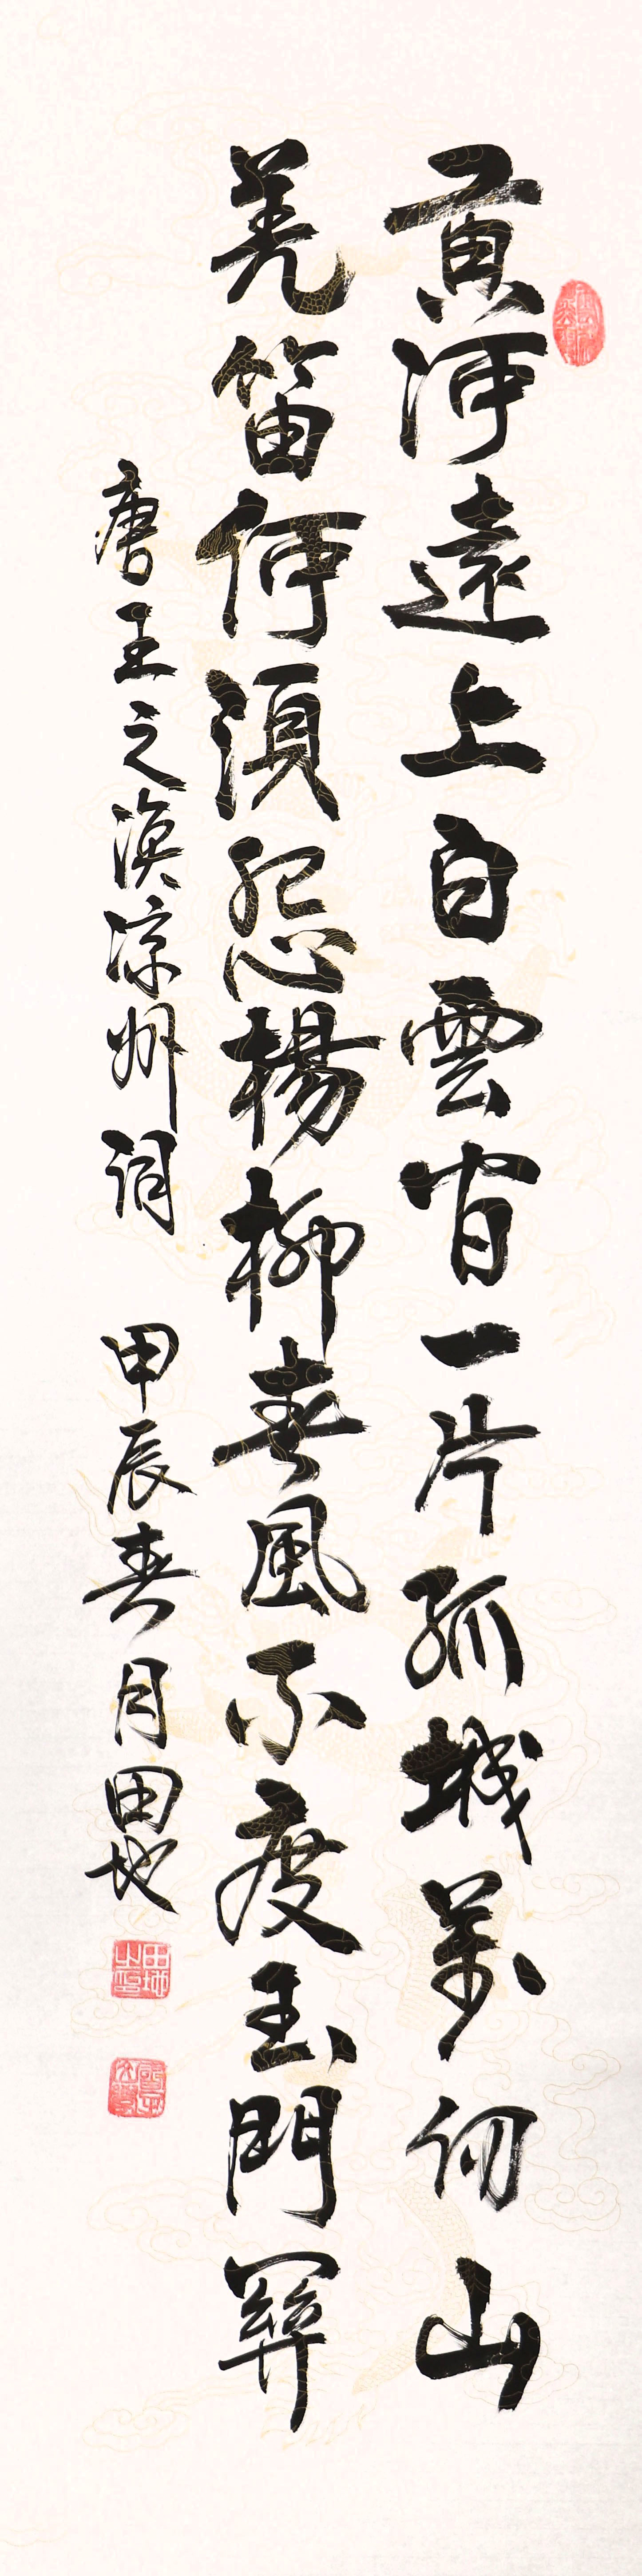 黃河遠上白雲間一片孤城萬仞山
羌笛何須怨楊柳春風不度玉門關
唐王之渙涼州詞 甲辰春月田地
田地之印